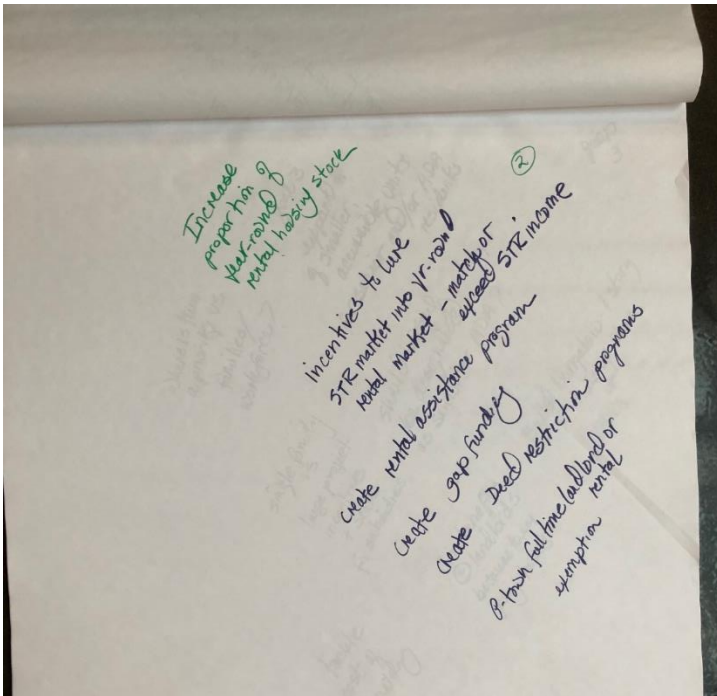 ②
Increase
proportion of
year-round
rental housing stock
incentives to lure
STR market into yr. round
rental market - match or
exceed STR income
create rental assistance program
create gap funding
create Deed restriction programs
P-town full time landlord or
rental
exemption